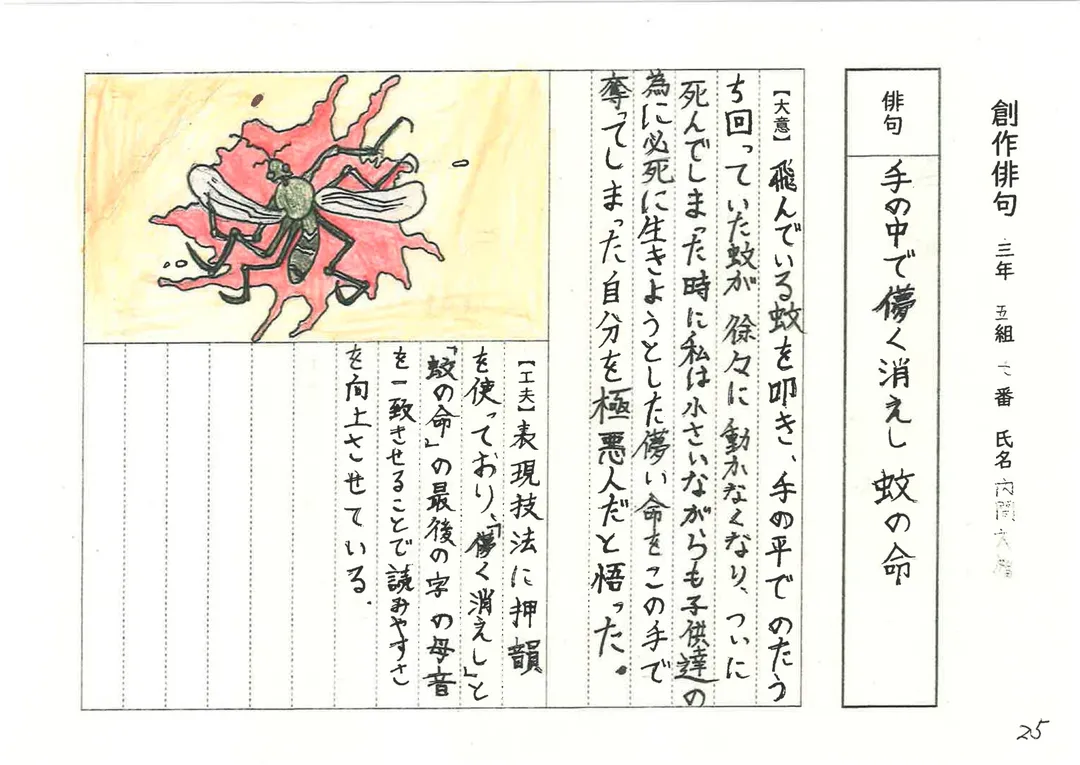 創作俳句 三年 五組 番 氏名
俳句 手の中で儚く消えし蚊の命
【大意】飛んでいる蚊を叩き、手の平でのたう
ち回っていた蚊が徐々に動かなくなり、ついに
死んでしまった時に私は小さいながらも子供達の
為に必死に生きようとした儚い命をこの手で
奪ってしまった自分を極悪人だと悟った。
【工夫】表現技法に押韻
を使っており、「儚く消えし」と
「蚊の命」の最後の字の母音
を一致させることで読みやすさ
を向上させている.
25